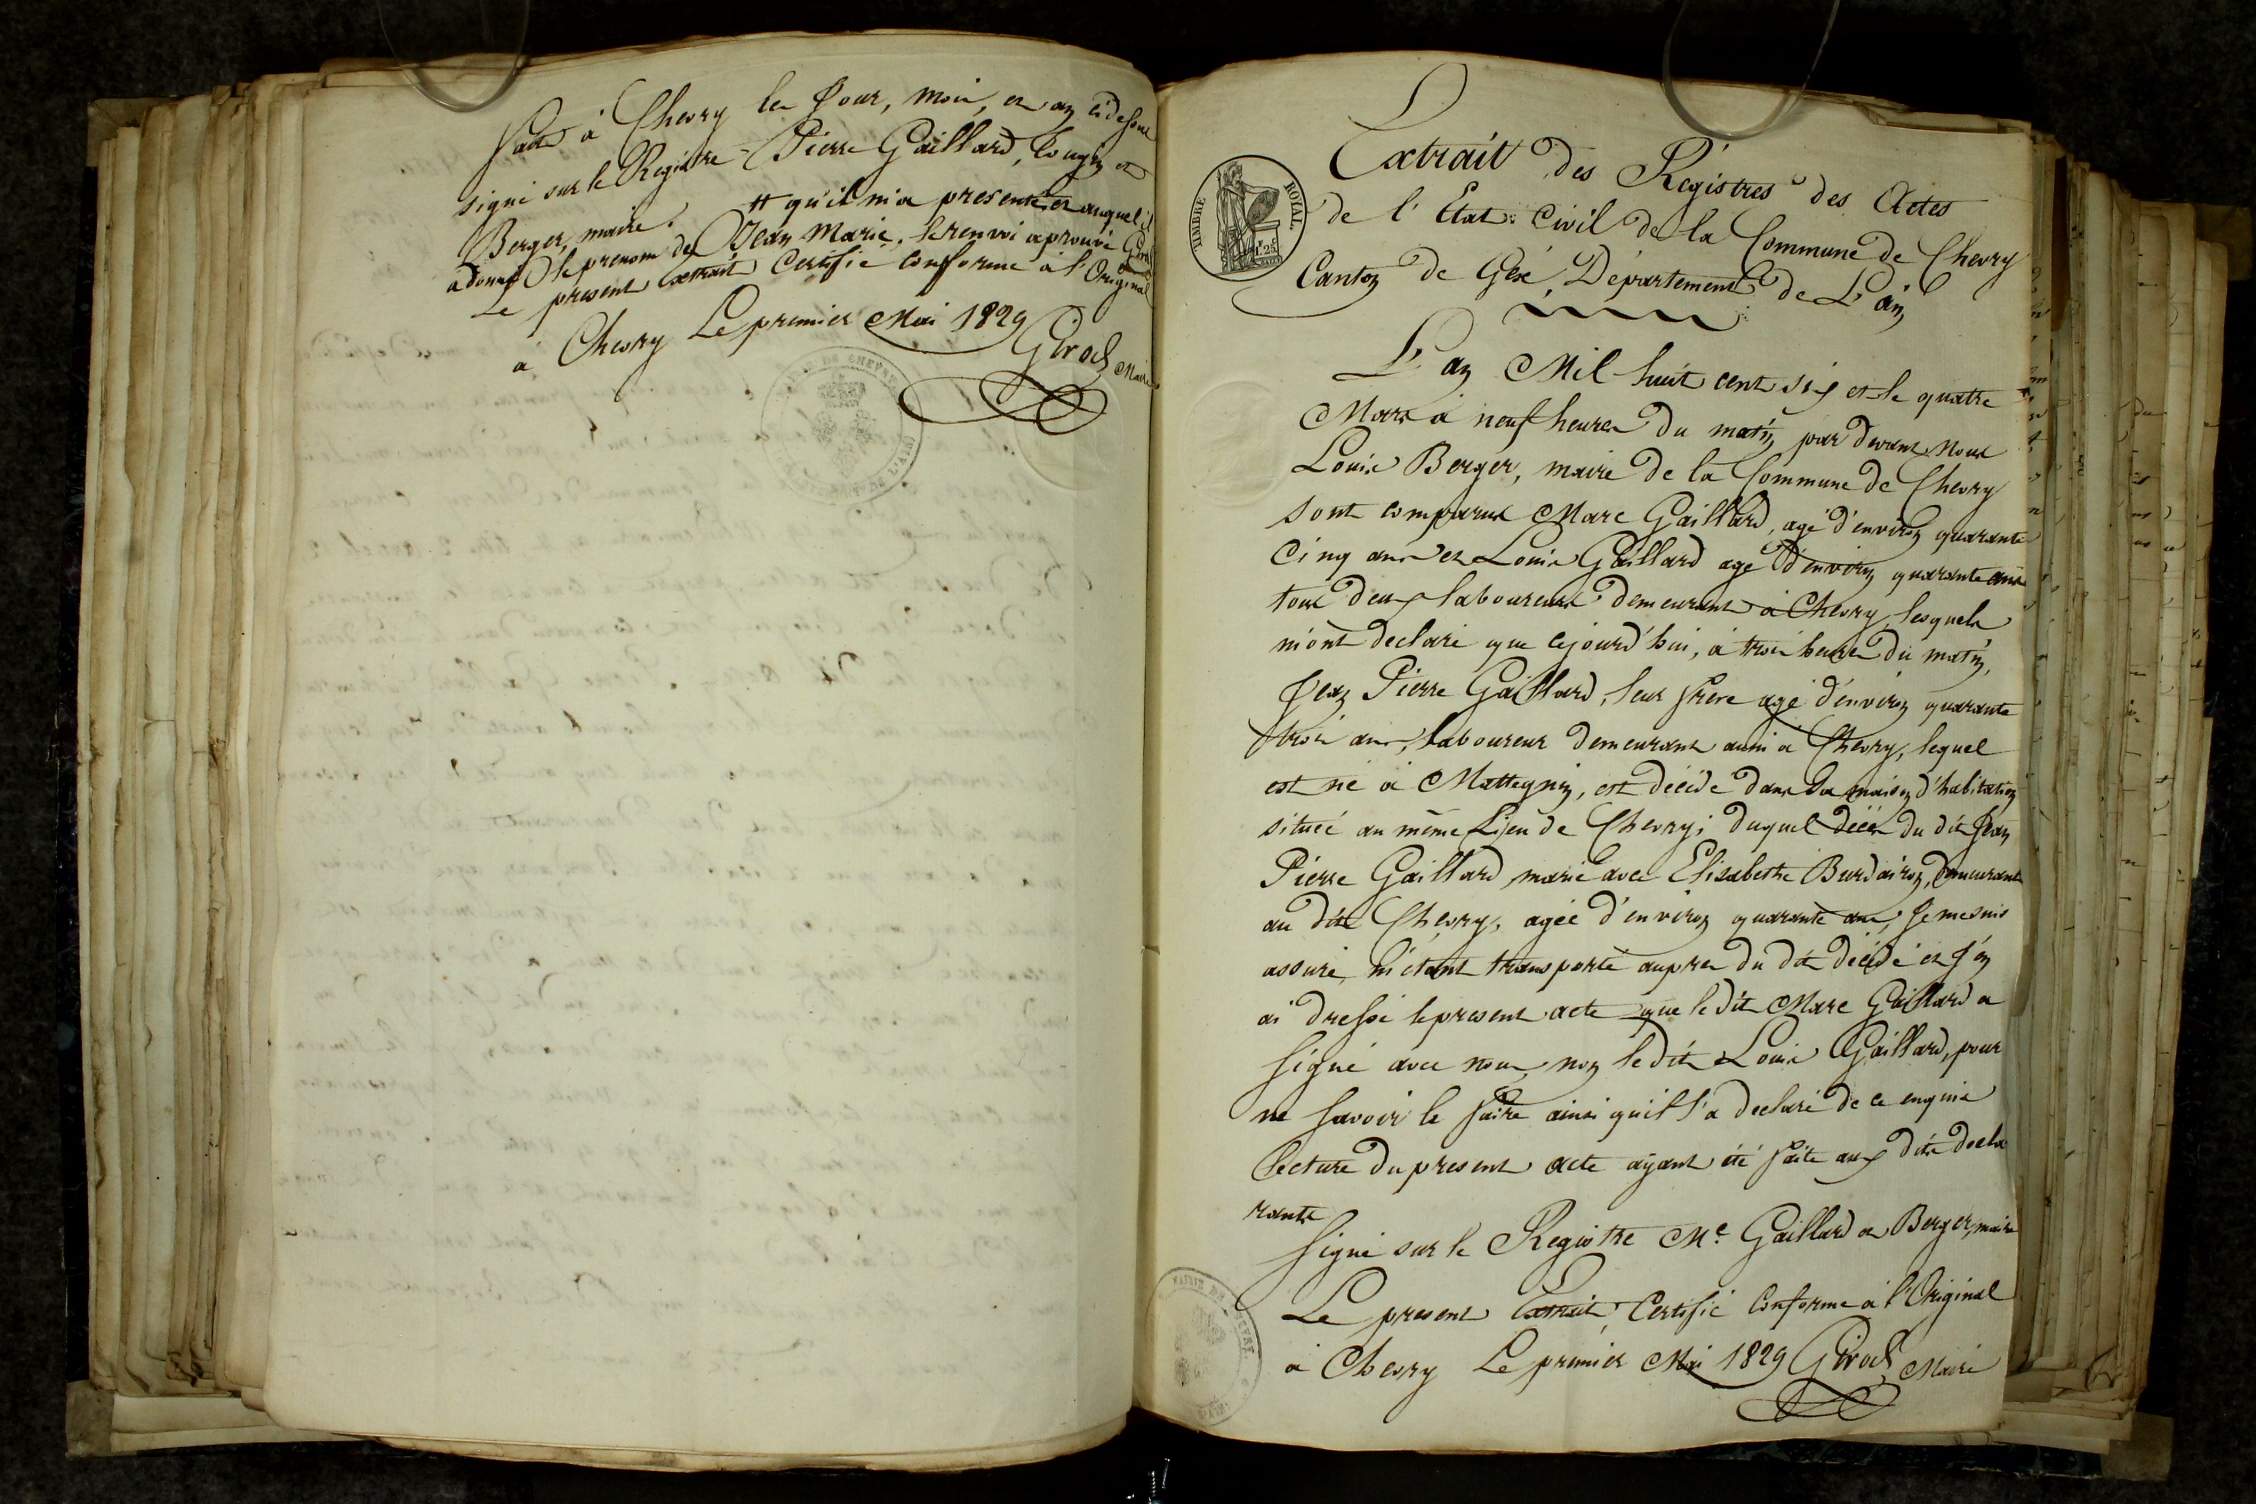 faite à Chevry les Jour, mois, et an ci dessus
signé sur le Registre Pierre Gaillard, et
Berger, maire.
# qu'il m'a presenté et auquel il
a donné le prenom de Jean Marie. le renvoi aprouvé
Le present extrait Certifié conforme à l'Original
à Chevry Le premier Mai 1829 Girod Maire
TIMBRE ROYAL
1.25
Extrait des Régistres des Actes
de l'Etat civil de la Commune de Chevry
Canton de Gex, Département de L'ain
L'an Mil huit cent six et le quatre
Mars à neuf heures du matin par devant Nous
Louis Berger, maire de la Commune de Chevry
sont comparus Marc Gaillard, agé d'environ quarante
cinq ans et Louis Gaillard agé d'environ quarante ans
tous deux laboureurs demeurant à Chevry, lesquels
m'ont declaré que cejourd'hui, à trois heures du matin,
Jean Pierre Gaillard, leur frere agé d'environ quarante
trois ans, laboureur demeurant aussi à Chevry, lequel
est né à Mattegnin, est décédé dans sa maison d'habitation
située au même Lieu de Chevry; duquel décès du dit Jean
Pierre Gaillard marié avec Elisabethe Burdairon, demeurant
au dit Chevry, agée d'environ quarante ans, Je me suis
assuré, m'étant transporté aupres du dit décédé et J'en
ai dressé le present acte que le dit Marc Gaillard a
signé avec nous, non le dit Louis Gaillard, pour
ne savoir le faire ainsi qu'il l'a declaré de ce enquis
lecture du present acte ayant été faite aux dits decla
rants
signé sur le Registre Mc. Gaillard et Berger, maire
Le present Extrait, Certifié Conforme à l'Original
à Chevry Le premier Mai 1829 Girod, Maire